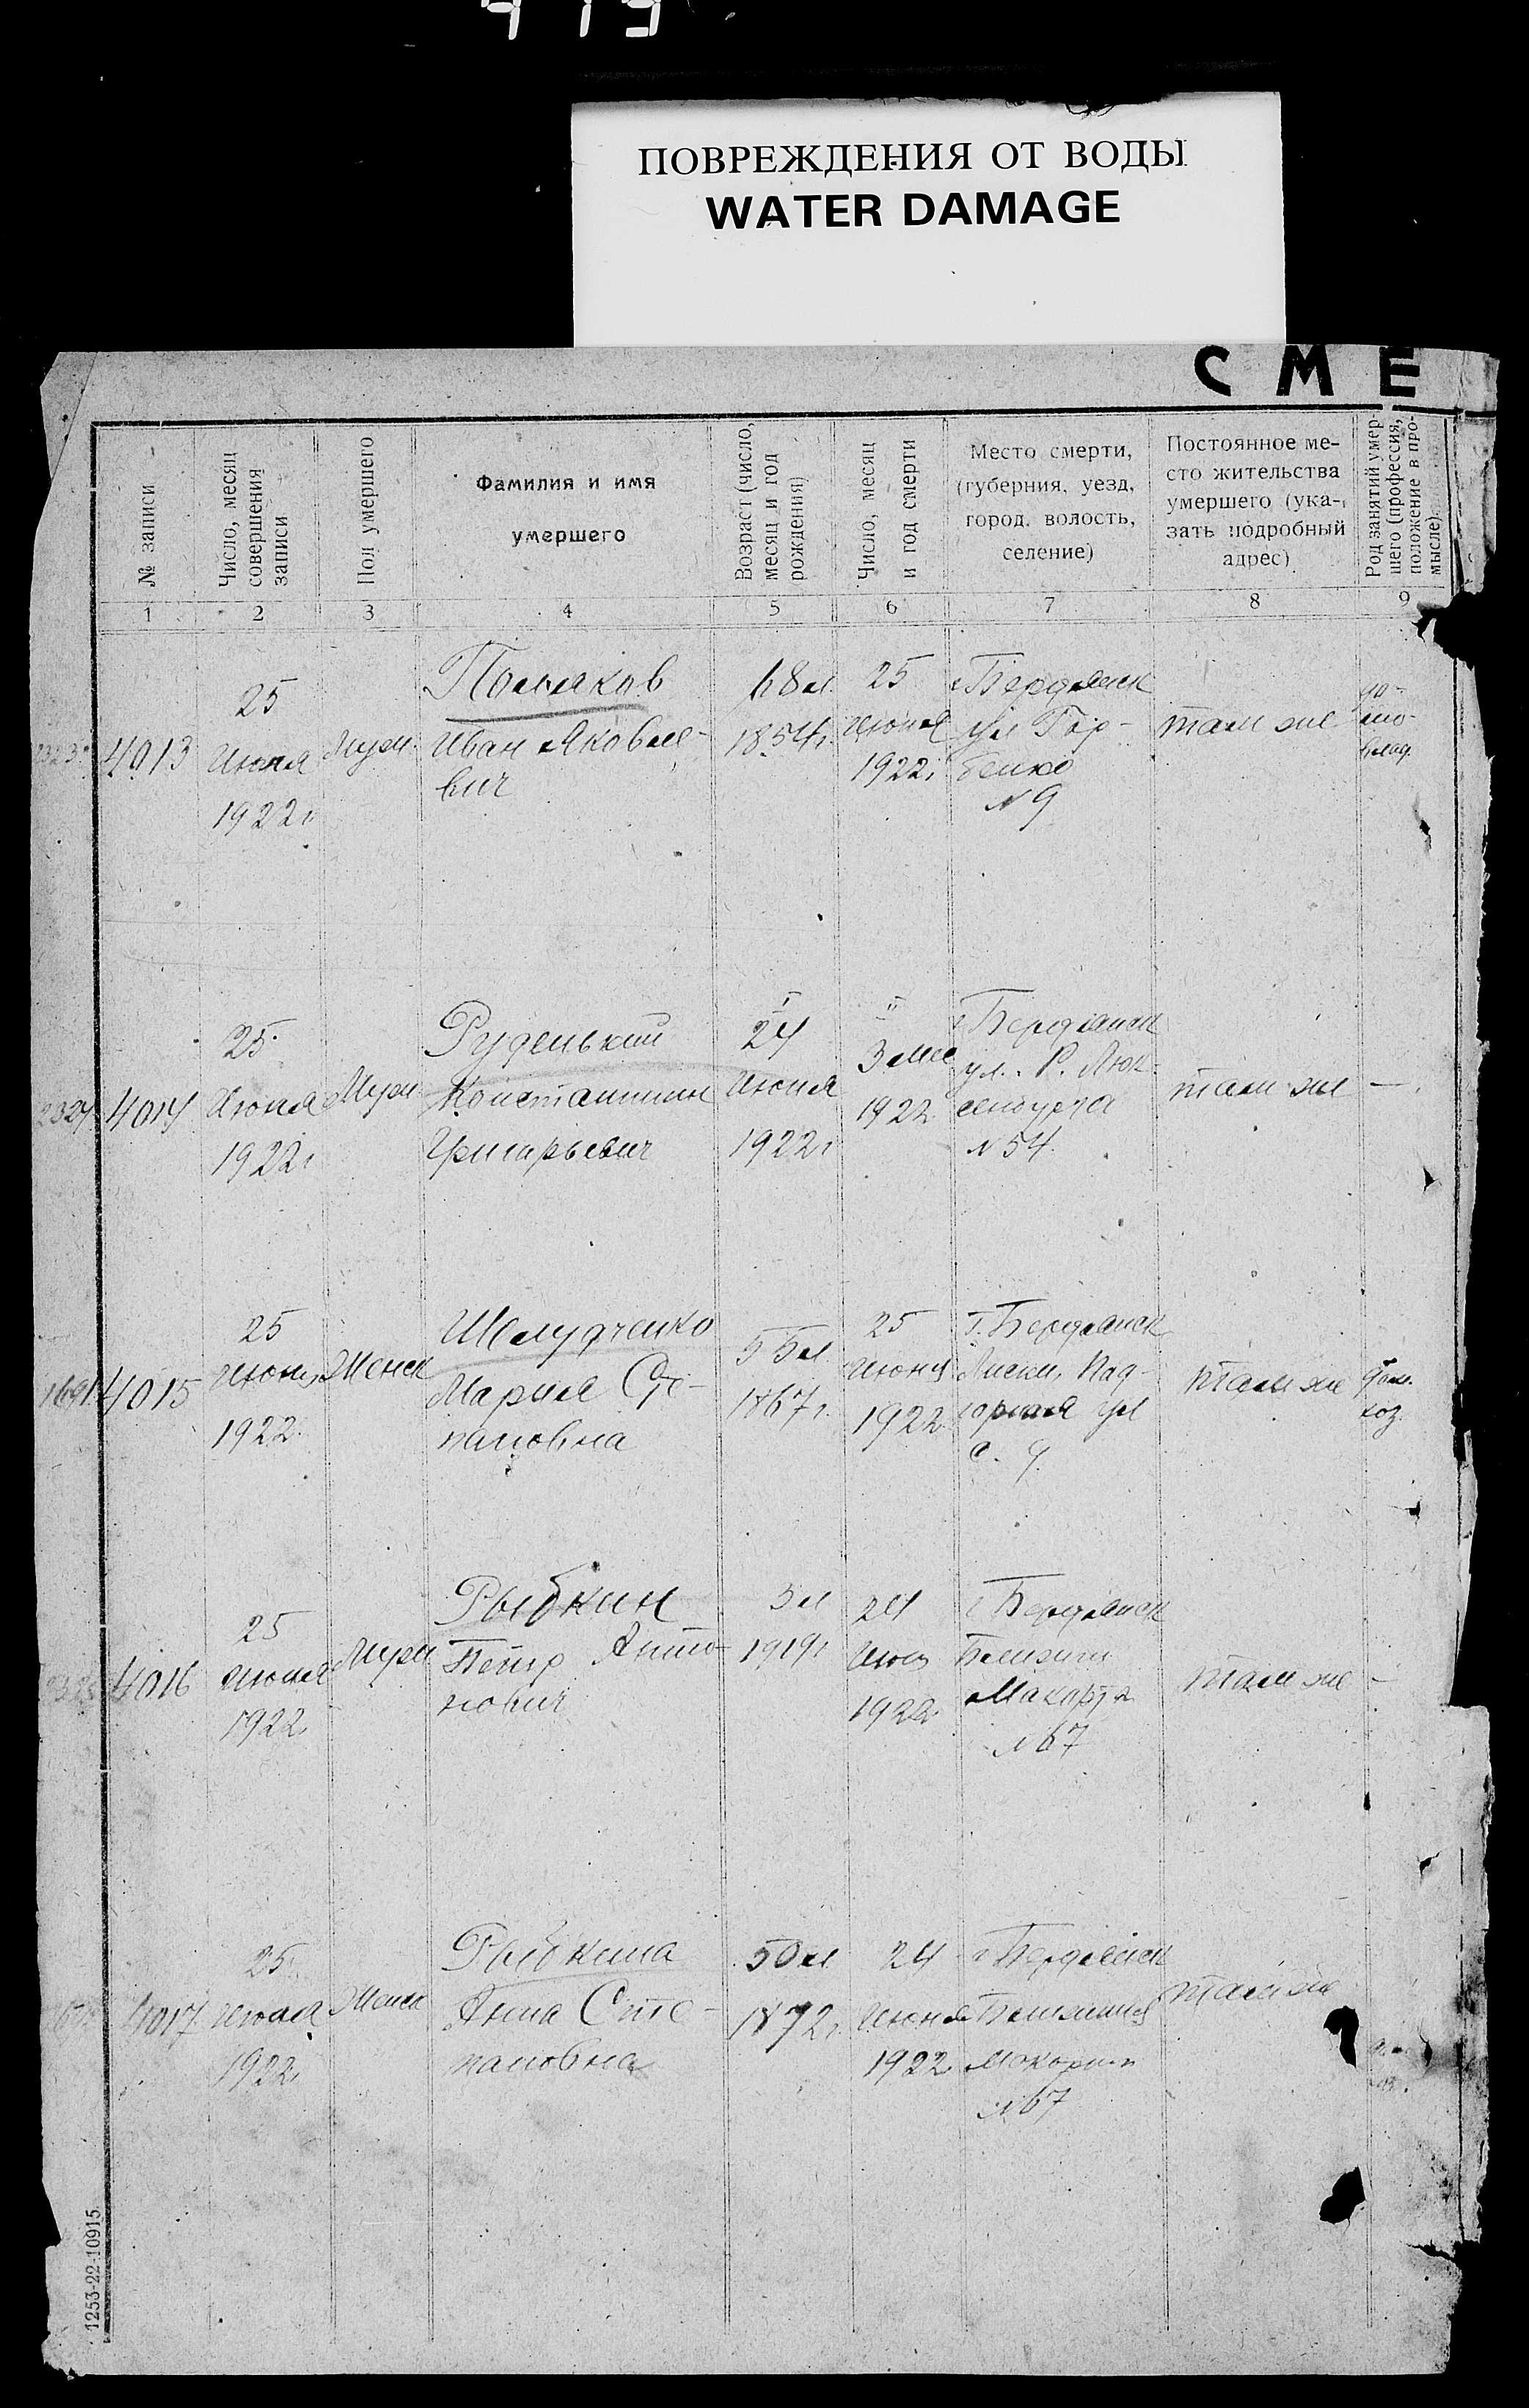 ПОВРЕЖДЕНИЯ ОТ ВОДЫ
WATER DAMAGE
СМЕ
№ записи
Число, месяц
совершения
записи
Пол умершего
Фамилия и имя
умершего
Возраст (число,
месяц и год
рождения)
Число, месяц
и год смерти
Место смерти,
(губерния, уезд,
город, волость,
селение)
Постоянное ме-
сто жительства
умершего (ука-
зать подробный
адрес)
Род занятий умер-
шего (профессия,
положение в про-
мысле)
1 2 3 4 5 6 7 8 9
2323
4013
25
Июня
1922г
Муж.
Поляков
Иван Яковле-
вич
68л.
1854г.
25
Июня
1922г.
г Бердянск
ул Гор-
бенко
№ 9
там же
до-
мо-
влад.
2324
4014
25
Июня
1922г
Муж
Руденький
Константин
Григорьевич
24
Июня
1922г
1922
г Бердянск
ул. Р. Люк-
сенбурга
№ 54.
там же
—
1691
4015
25
Июня
1922.
Женск
Шелудченко
Мария Сте-
пановна
55л.
1867г.
25
Июня
1922
г. Бердянск
Лиски, Наг-
орная ул
там же
дом.
хоз.
4016
25
Июня
1922
Муж
Рыбкин
Петр Анто-
нович
3л
1919г
24
Июня
1922
г Бердянск
№ 67
там же
—
4017
25
Июня
1922
Женск
Рыбкина
Анна Сте-
пановна
50л
1872г.
24
Июня
1922
г Бердянск
№ 67
там же
1253-22-10915